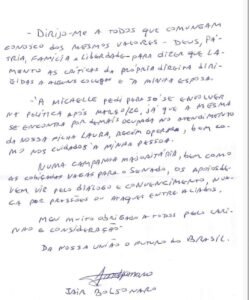 - Dirijo-me a todos que comungam
conosco dos mesmos valores - Deus, Pá-
tria, família e liberdade - para dizer que la-
mento as críticas da própria direita diri-
gidas a alguns colegas e à minha esposa.
- A Michelle pedi para só se envolver
na política após março/26, já que a mesma
se encontra por demais ocupada no atendimento
da nossa filha Laura, recém operada, bem co-
mo nos cuidados à minha pessoa.
Numa campanha majoritária, bem como
as cobiçadas vagas para o Senado, os apoios de-
vem vir pelo diálogo e convencimento, nun-
ca por pressões ou ataques entre aliados.
Meu muito obrigado a todos pelo cari-
nho e consideração.
Da nossa união o futuro do Brasil.
Jair Bolsonaro